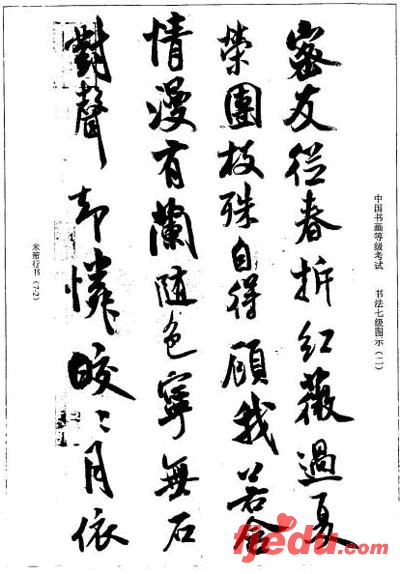 中国书画等级考试 书法七级图示（二）
密友從春拆紅薇過夏
榮團枝殊自得顧我若含
情漫有蘭随色寧無石
對聲却憐皎〻月依
米芾行书（7-2）
fjedu.com